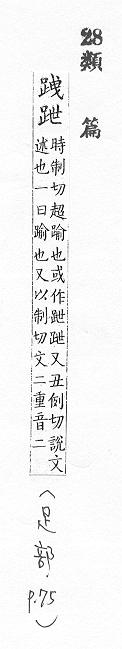 28
類篇
跩跇
時制切超踰也或作跇跇又丑例切說文
述也一曰踰也又以制切文二重音二
(足部.p.75)